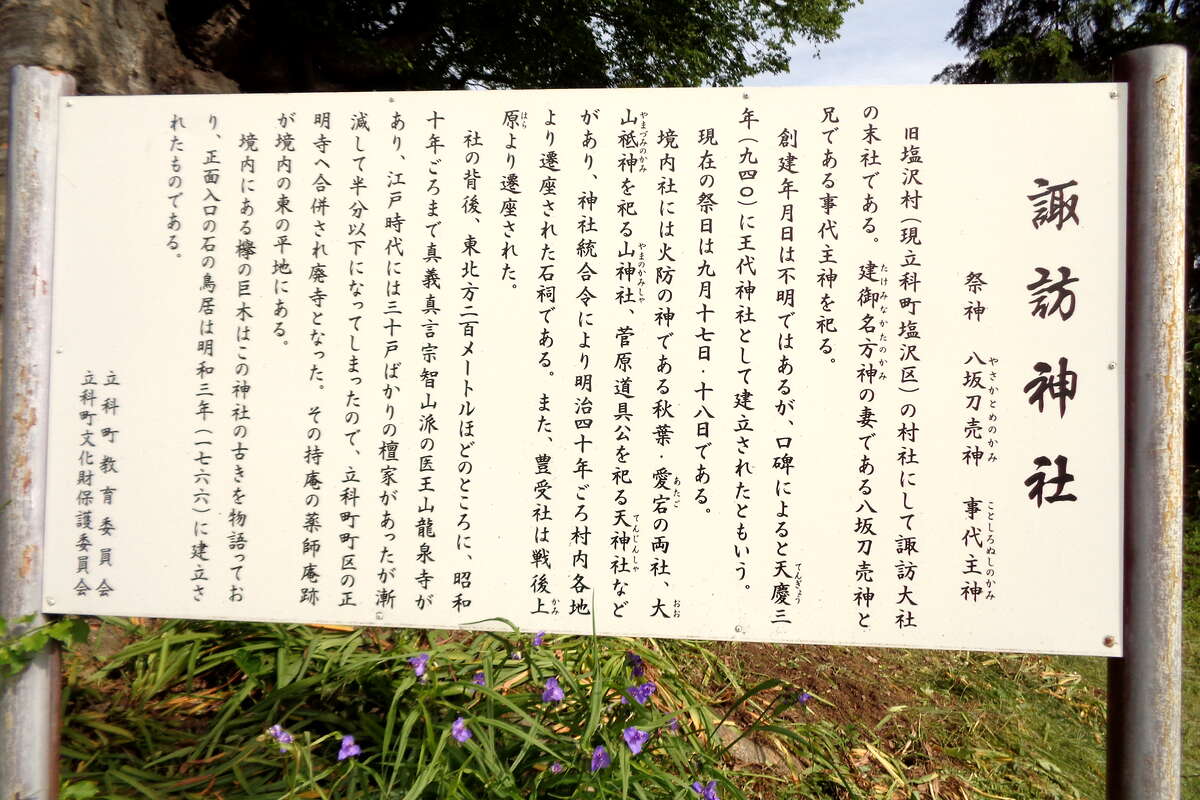 諏訪神社
祭神　八坂刀売神　事代主神
やさかとめのかみ　ことしろぬしのかみ
旧塩沢村（現立科町塩沢区）の村社にして諏訪大社
の末社である。建御名方神の妻である八坂刀売神と
たけみなかたのかみ
兄である事代主神を祀る。
創建年月日は不明ではあるが、口碑によると天慶三
てんぎょう
年（九四〇）に王代神社として建立されたともいう。
現在の祭日は九月十七日・十八日である。
境内社には火防の神である秋葉・愛宕の両社、大
あたご　おお
山祗神を祀る山神社、菅原道真公を祀る天神社など
やまづみのかみ　やまのかみしゃ　てんじんしゃ
があり、神社統合令により明治四十年ごろ村内各地
より遷座された石祠である。また、豊受社は戦後上
かみ
原より遷座された。
はら
社の背後、東北方二百メートルほどのところに、昭和
十年ごろまで真義真言宗智山派の医王山龍泉寺が
あり、江戸時代には三十戸ばかりの檀家があったが漸
減して半分以下になってしまったので、立科町町区の正
明寺へ合併され廃寺となった。その持庵の薬師庵跡
が境内の東の平地にある。
境内にある欅の巨木はこの神社の古きを物語ってお
り、正面入口の石の鳥居は明和三年（一七六六）に建立さ
れたものである。
立科町教育委員会
立科町文化財保護委員会